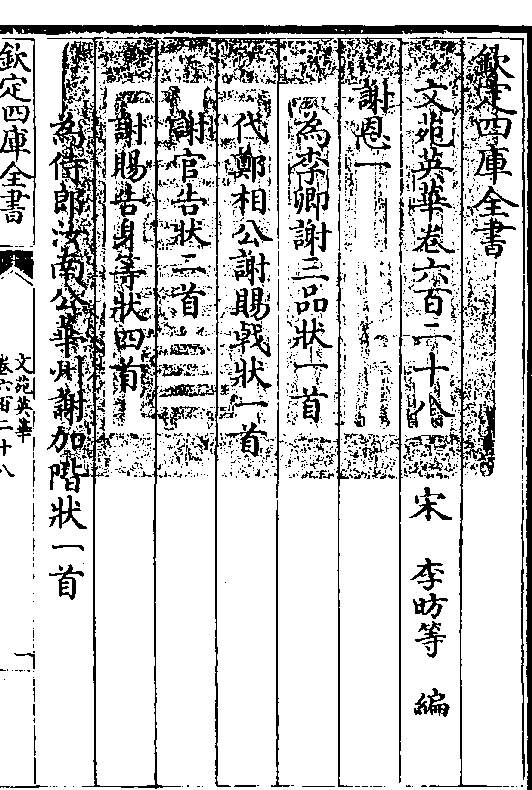 欽定四庫全書
文苑英華卷六百二十八
宋 李昉等 編
謝恩一
為李卿謝三品狀一首
代鄭相公謝賜戟狀一首
謝官告狀二首
謝賜告身等狀四首
為侍郎汝南公華州謝加階狀一首
欽定四庫全書
文苑英華
卷六百二十八
一